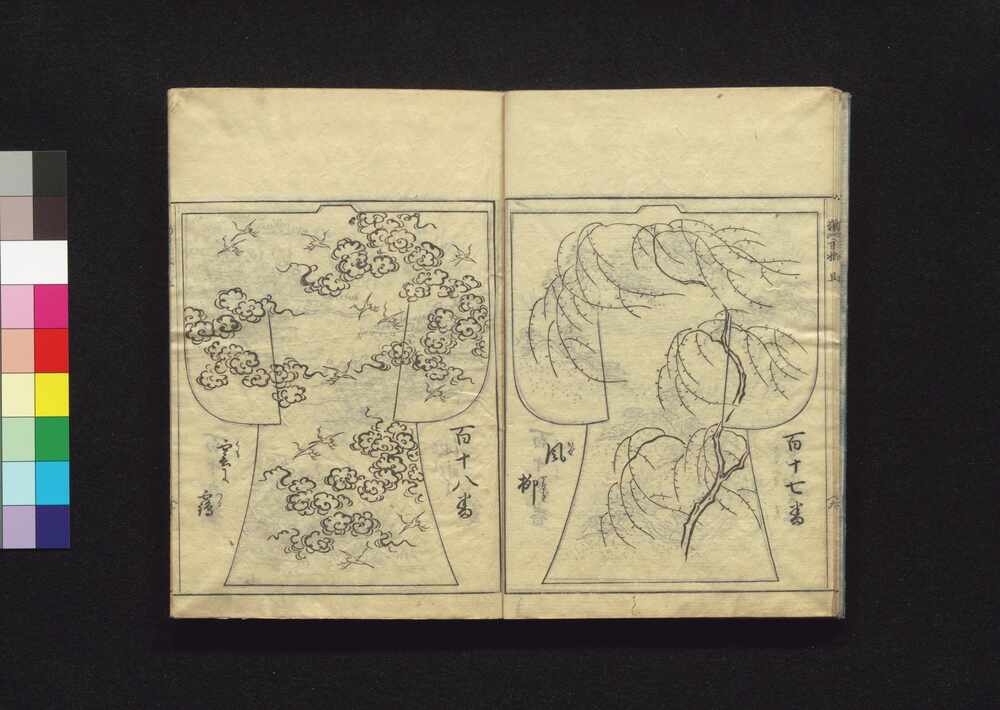 百十七番
風
柳
百十八番
雲に
鶴